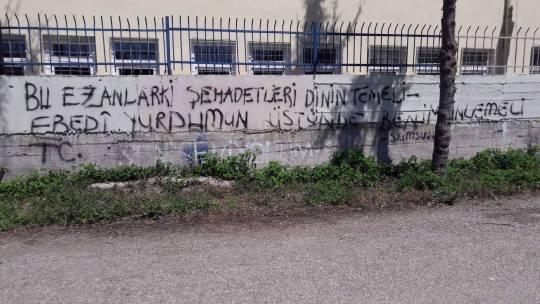 BU EZANLARKİ ŞEHADETLERİ DİNİN TEMELİ-
EBEDİ YURDUMUN ÜSTÜNDE BENİM İNLEMELİ
SAMSUN
TC